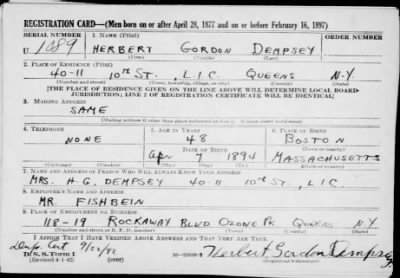 REGISTRATION CARD—(Men born on or after April 28, 1877 and on or before February 16, 1897)
SERIAL NUMBER 1. NAME (Print) ORDER NUMBER
U. 1089 HERBERT GORDON DEMPSEY
(First) (Middle) (Last)
2. PLACE OF RESIDENCE (Print)
40-11 10TH ST., L.I.C. QUEENS N.Y.
(Number and street) (Town, township, village, or city) (County) (State)
[THE PLACE OF RESIDENCE GIVEN ON THE LINE ABOVE WILL DETERMINE LOCAL BOARD
JURISDICTION; LINE 2 OF REGISTRATION CERTIFICATE WILL BE IDENTICAL]
3. MAILING ADDRESS
SAME
[Mailing address if other than place indicated on line 2. If same insert word same]
4. TELEPHONE 5. AGE IN YEARS 6. PLACE OF BIRTH
NONE 48 BOSTON
DATE OF BIRTH (Town or county)
Apr 7 1894 MASSACHUSETTS
(Exchange) (Number) (Mo.) (Day) (Yr.) (State or country)
7. NAME AND ADDRESS OF PERSON WHO WILL ALWAYS KNOW YOUR ADDRESS
MRS. H.G. DEMPSEY 40-11 10TH ST., L.I.C.
8. EMPLOYER'S NAME AND ADDRESS
MR. FISHBEIN
9. PLACE OF EMPLOYMENT OR BUSINESS
118-19 ROCKAWAY BLVD OZONE PK. QUEENS N.Y.
(Number and street or R. F. D. number) (Town) (County) (State)
I AFFIRM THAT I HAVE VERIFIED ABOVE ANSWERS AND THAT THEY ARE TRUE.
D. S. S. Form 1
(Revised 4-1-42) (over) Herbert Gordon Dempsey
(Registrant's signature)